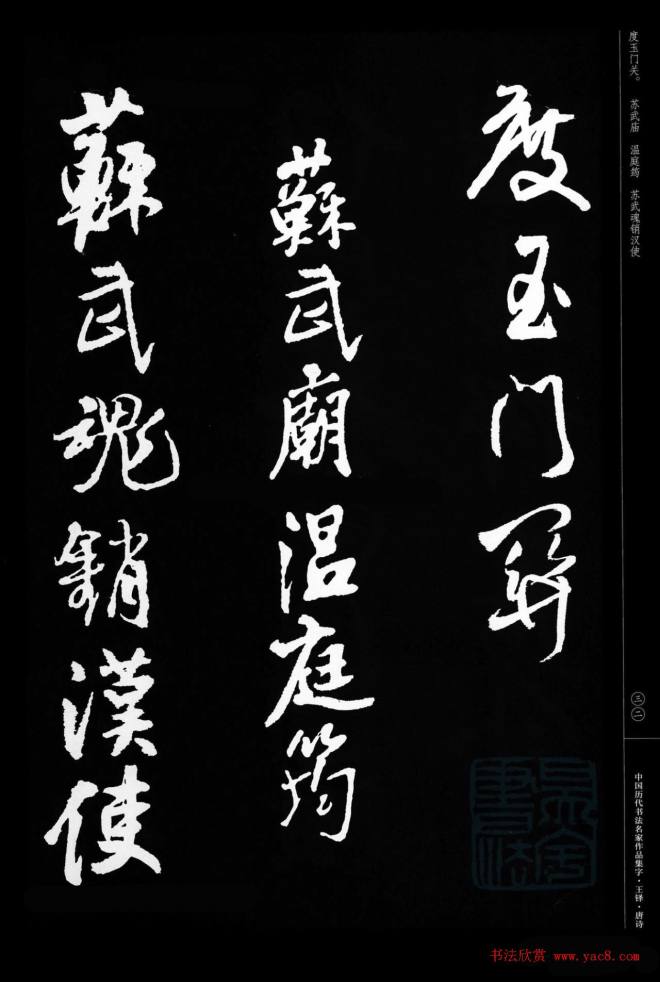 度玉门关。 苏武庙 温庭筠 苏武魂销汉使
度玉門關
蘇武廟溫庭筠
蘇武魂銷漢使
三二
中国历代书法名家作品集字·王铎·唐诗
书法欣赏 www.yac8.com